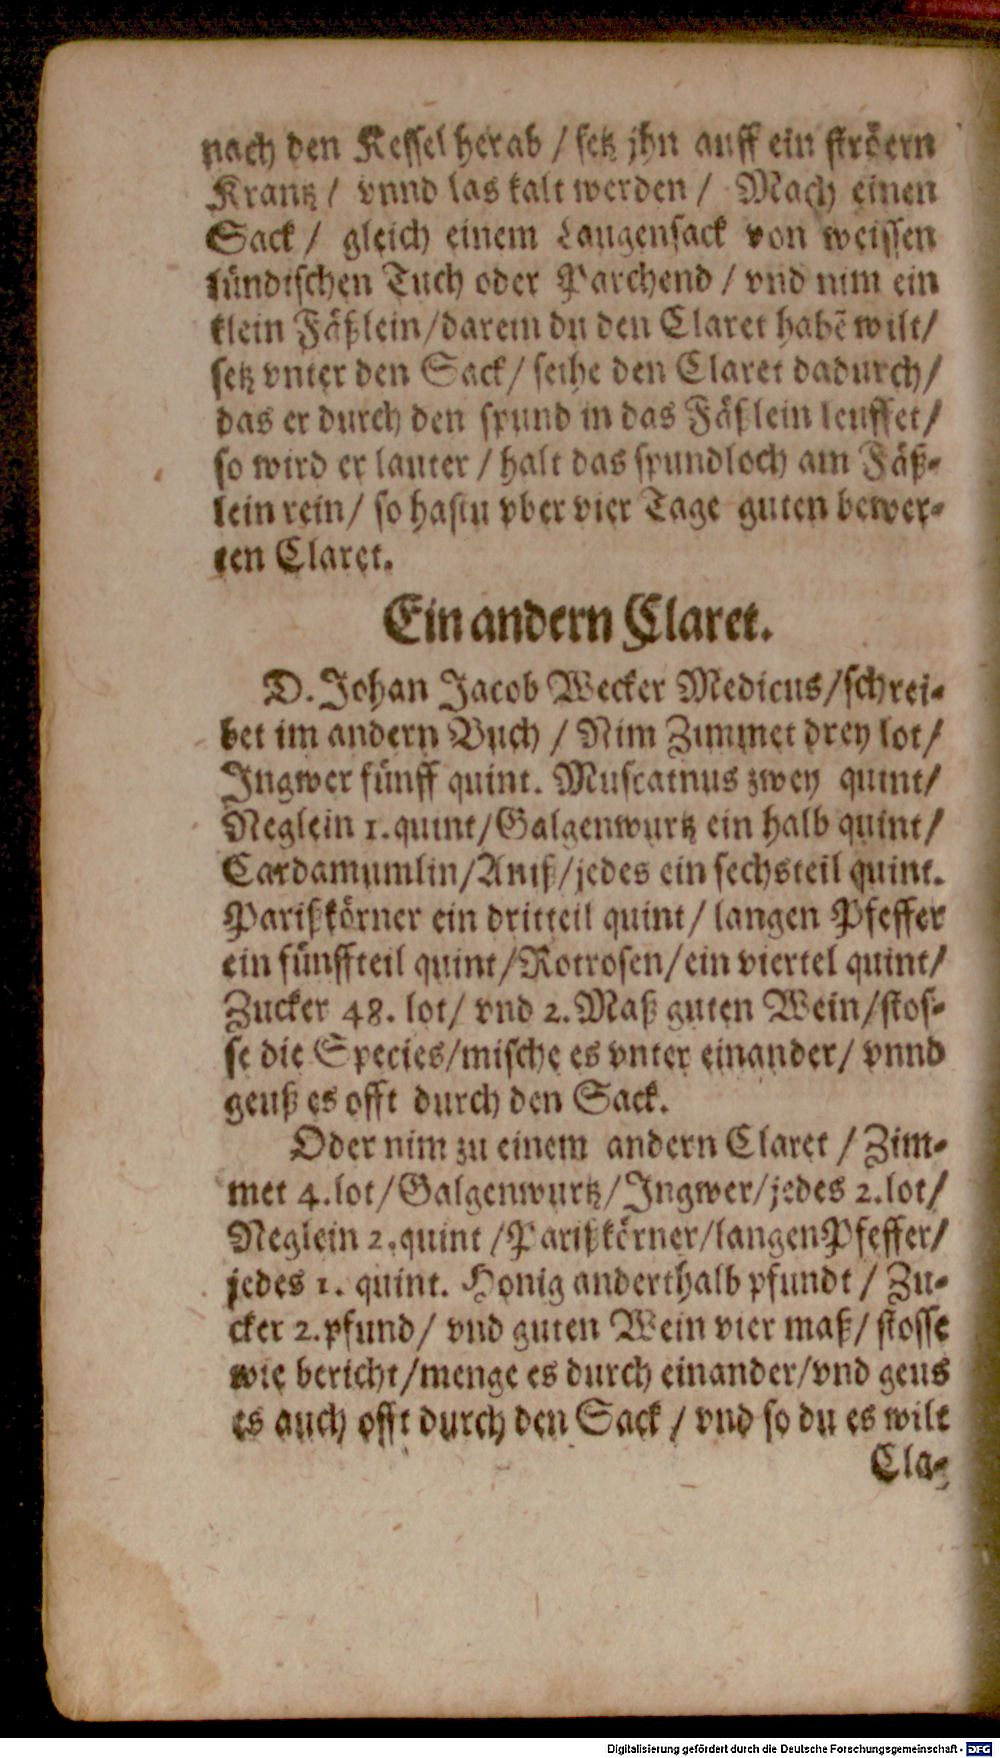 nach den Kessel herab / setz jhn auff ein ströern
Krantz / vnnd las kalt werden / Mach einen
Sack / gleich einem Laugensack von weissen
lündischen Tuch oder Parchend / vnd nim ein
klein Fäßlein / darein du den Claret habẽ wilt /
setz vnter den Sack / seihe den Claret dadurch /
das er durch den spund in das Fäßlein leuffet /
so wird er lauter / halt das spundloch am Fäß-
lein rein / so hastu vber vier Tage guten bewer-
ten Claret.
Ein andern Claret.
D. Johan Jacob Wecker Medicus / schrei-
bet im andern Buch / Nim Zimmet drey lot /
Ingwer fünff quint. Muscatnus zwey quint /
Neglein 1. quint / Galgenwurtz ein halb quint /
Cardamumlin / Aniß / jedes ein sechsteil quint.
Parißkörner ein dritteil quint / langen Pfeffer
ein fünffteil quint / Rotrosen / ein viertel quint /
Zucker 48. lot / vnd 2. Maß guten Wein / stos-
se die Species / mische es vnter einander / vnnd
geuß es offt durch den Sack.
Oder nim zu einem andern Claret / Zim-
met 4. lot / Galgenwurtz / Ingwer / jedes 2. lot /
Neglein 2. quint / Parißkörner / langen Pfeffer /
jedes 1. quint. Honig anderthalb pfundt / Zu-
cker 2. pfund / vnd guten Wein vier maß / stosse
wie bericht / menge es durch einander / vnd geus
es auch offt durch den Sack / vnd so du es wilt
Cla-
Digitalisierung gefördert durch die Deutsche Forschungsgemeinschaft - DFG